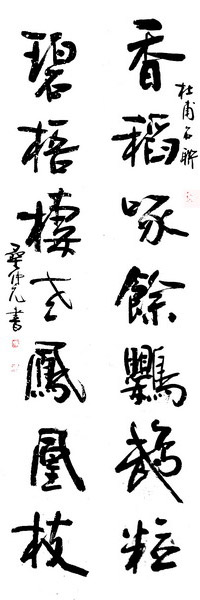 杜甫名聯
香稻啄餘鸚鵡粒
碧梧棲老鳳凰枝
書